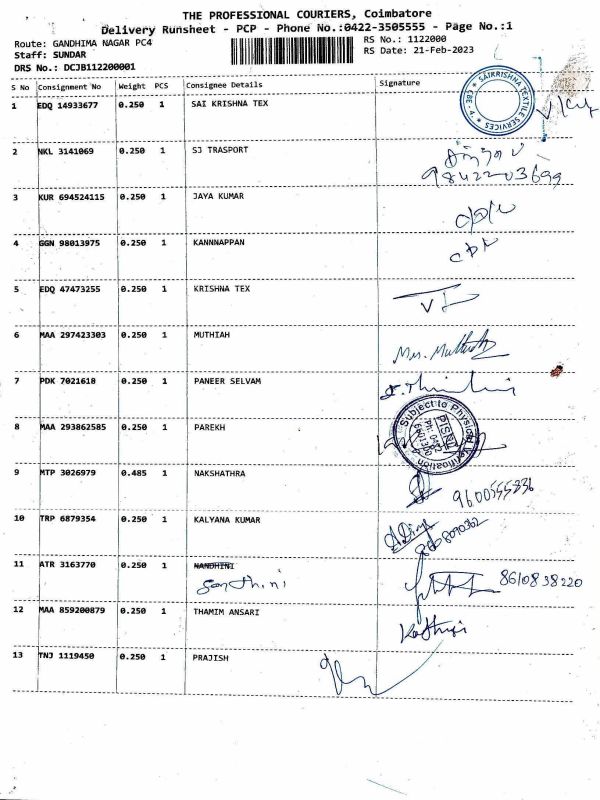 THE PROFESSIONAL COURIERS, Coimbatore
Delivery Runsheet - PCP - Phone No.:0422-3505555 - Page No.:1
Route: GANDHIMA NAGAR PC4
RS No.: 1122000
Staff: SUNDAR
RS Date: 21-Feb-2023
DRS No.: DCJB112200001
S No Consignment No Weight PCS Consignee Details Signature
1 EDQ 14933677 0.250 1 SAI KRISHNA TEX
SAIKRISHNA TEXTILE SERVICES ★ CBE - 4 ★
2 NKL 3141069 0.250 1 SJ TRASPORT
9842203699
3 KUR 694524115 0.250 1 JAYA KUMAR
4 GGN 98013975 0.250 1 KANNNAPPAN
5 EDQ 47473255 0.250 1 KRISHNA TEX
6 MAA 297423303 0.250 1 MUTHIAH
Mrs. Muthiah
7 PDK 7021618 0.250 1 PANEER SELVAM
8 MAA 293862585 0.250 1 PAREKH
Subject to Physical Verification
9 MTP 3026979 0.485 1 NAKSHATHRA
10 TRP 6879354 0.250 1 KALYANA KUMAR
11 ATR 3163770 0.250 1 NANDHINI
Santhini
8610838220
12 MAA 859200879 0.250 1 THAMIM ANSARI
13 TNJ 1119450 0.250 1 PRAJISH